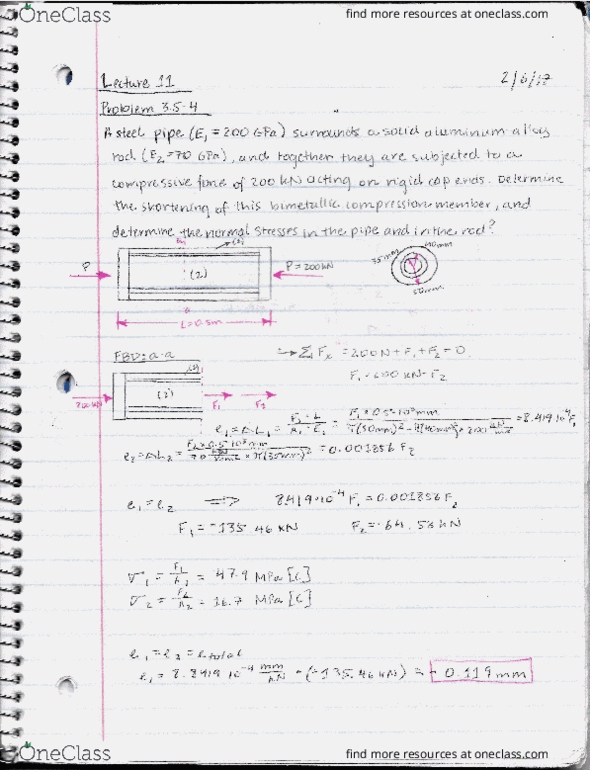 OneClass
find more resources at oneclass.com
Lecture 11
2/6/17
Problem 3.5-4
A steel pipe (E₁ = 200 GPa) surrounds a solid aluminum alloy
rod (E₂ = 70 GPa), and together they are subjected to a
compressive force of 200 kN acting on rigid cap ends. Determine
the shortening of this bimetallic compression member, and
determine the normal stresses in the pipe and in the rod?
P
(2)
P = 200kN
35mm
40mm
L = 0.5m
FBD: a-a
→ Σ Fx = 200N + F₁ + F₂ = 0
(2)
F₁ F₂
e₁ = ΔL₁ =
e₂ = ΔL₂ = = 0.001856 F₂
e₁ = e₂ => 8.419·10⁻⁴ F₁ = 0.001856 F₂
F₁ = -135.46 kN F₂ = -64.56 kN
σ₁ = F₁/A₁ = 47.9 MPa [C]
σ₂ = F₂/A₂ = 16.7 MPa [C]
e₁ = e₂ = etotal
e₁ = 8.8419·10⁻⁴ mm/kN · (-135.46 kN) = - 0.119 mm
OneClass
find more resources at oneclass.com